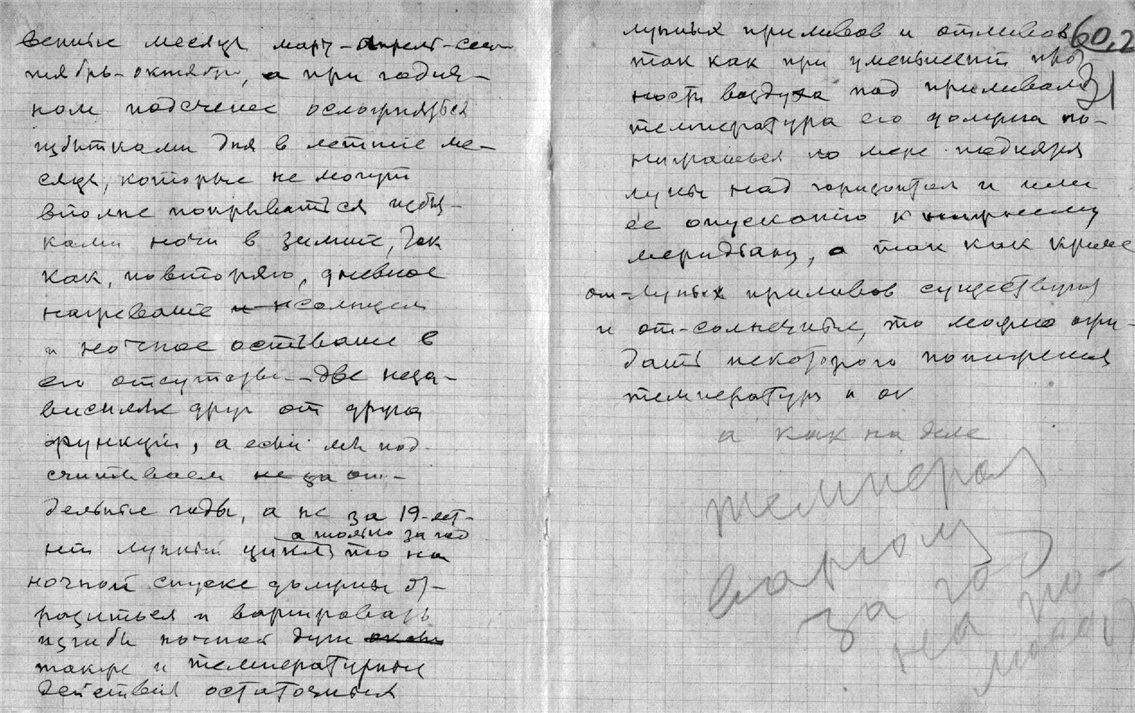 венные месяцы март-апрель-сен
тябрь-октябрь, а при годич-
ном подсчете осложняться
избытками дня в летние ме-
сяцы, которые не могут
вполне покрываться избы-
ками ночи в зимние, так
как, повторяю, дневное
нагревание солнцем
и ночное остывание в
его отсутствие - две неза-
висимых друг от друга
функции, а если мы под-
считываем не за от-
дельные годы, а не за 19-лет-
а только за год
ний лунный цикл, то на
ночном спуске должны от-
разиться и варьировать
изгибы ночной дуги
также и температурные
действия остаточных
лунных приливов и отливов
60,2
так как при уменьшении
31
ности воздуха под приливами
температура его должна по-
нижаться по мере поднятия
луны над горизонтом и или
ее опусканию к
меридиану, а так как кроме
от-лунных приливов существуют
и от-солнечные, то можно ожи-
дать некоторого понижения
температуры и от
а как на деле
температ
вариац
за год
на по-